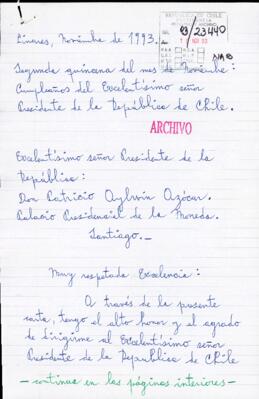 REPUBLICA DE CHILE
93/23440
Linares, Noviembre de 1993.
Segunda quincena del mes de Noviembre:
Cumpleaños del Excelentísimo señor
Presidente de la República de Chile.
ARCHIVO
Excelentísimo señor Presidente de la
República:
Don Patricio Aylwin Azócar.
Palacio Presidencial de la Moneda.
Santiago._
Muy respetada Excelencia:
A través de la presente
carta, tengo el alto honor y el agrado
de dirigirme al Excelentísimo señor
Presidente de la República de Chile
- continua en las páginas interiores -